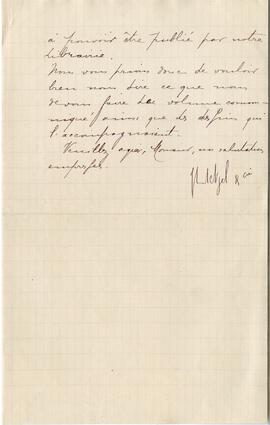 à pouvoir être publié par notre
librairie.
Nous vous prions donc de vouloir
bien nous dire ce que nous
devons faire du volume commu
niqué ainsi que des dessins qui
l'accompagnaient.
Veuillez agréer, Monsieur, nos salutations
empressées.
J Hetzel & Cie